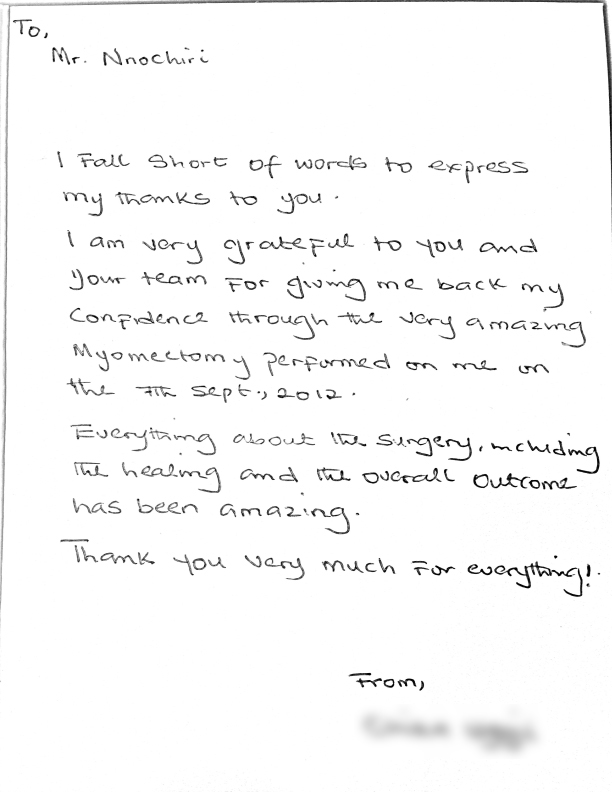 To,
Mr. Nnochiri
I Fall Short of words to express
my thanks to you.
I am very grateful to you and
your team For giving me back my
Confidence through the very amazing
Myomectomy performed on me on
the 7th Sept., 2012.
Everything about the surgery, including
The healing and the overall outcome
has been amazing.
Thank you very much For everything!
From,